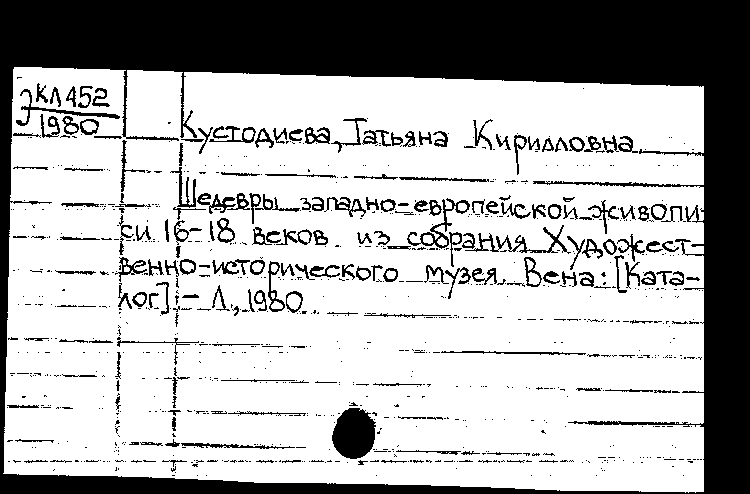 ЭКЛ452
1980
Кустодиева, Татьяна Кирилловна
Шедевры западно-европейской живопи-
си 16-18 веков из собрания Художест-
венно-исторического музея. Вена: [Ката-
лог]. - Л., 1980.